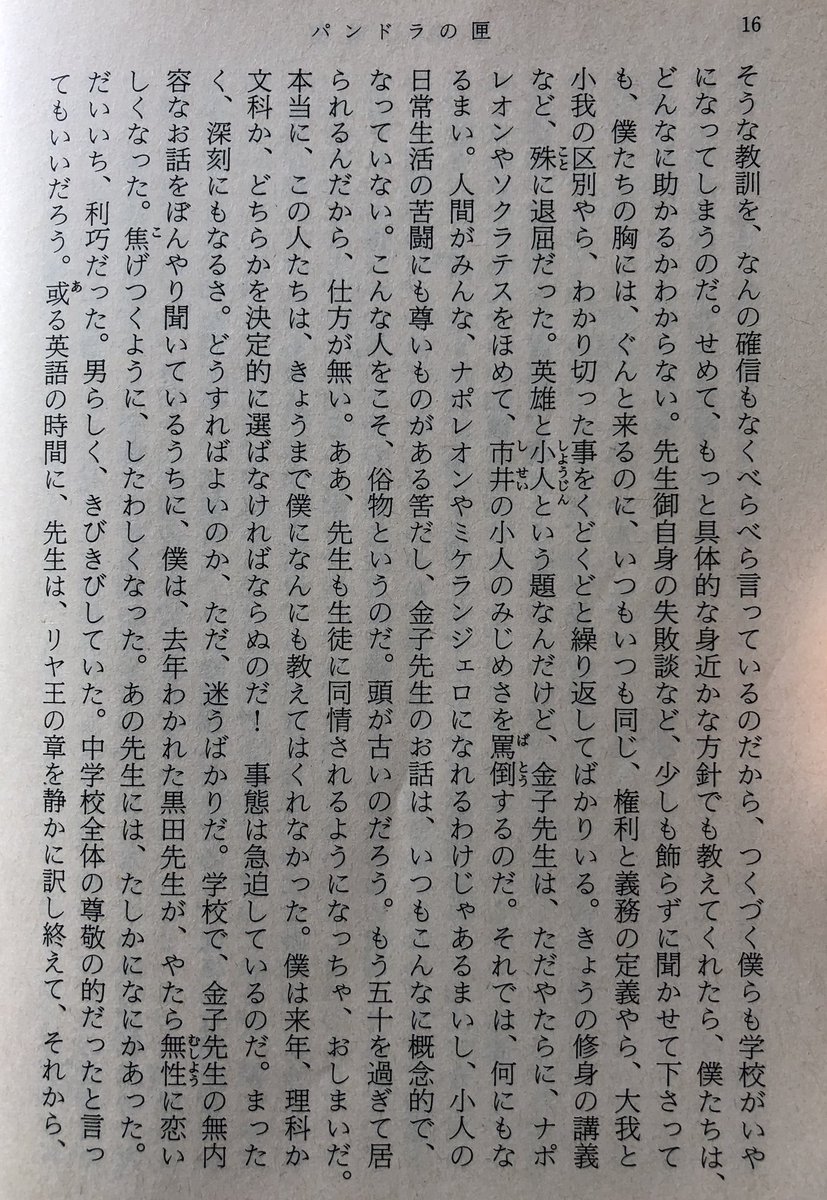 16
パンドラの匣
そうな教訓を、なんの確信もなくべらべら言っているのだから、つくづく僕らも学校がいや
になってしまうのだ。せめて、もっと具体的な身近かな方針でも教えてくれたら、僕たちは、
どんなに助かるかわからない。先生御自身の失敗談など、少しも飾らずに聞かせて下さって
も、僕たちの胸には、ぐんと来るのに、いつもいつも同じ、権利と義務の定義やら、大我と
小我の区別やら、わかり切った事をくどくどと繰り返してばかりいる。きょうの修身の講義
など、殊に退屈だった。英雄と小人という題なんだけど、金子先生は、ただやたらに、ナポ
レオンやソクラテスをほめて、市井の小人のみじめさを罵倒するのだ。それでは、何にもな
るまい。人間がみんな、ナポレオンやミケランジェロになれるわけじゃあるまいし、小人の
日常生活の苦闘にも尊いものがある筈だし、金子先生のお話は、いつもこんなに概念的で、
なっていない。こんな人をこそ、俗物というのだ。頭が古いのだろう。もう五十を過ぎて居
られるんだから、仕方が無い。ああ、先生も生徒に同情されるようになっちゃ、おしまいだ。
本当に、この人たちは、きょうまで僕になんにも教えてはくれなかった。僕は来年、理科か
文科か、どちらかを決定的に選ばなければならぬのだ！　事態は急迫しているのだ。まった
く、深刻にもなるさ。どうすればよいのか、ただ、迷うばかりだ。学校で、金子先生の無内
容なお話をぼんやり聞いているうちに、僕は、去年わかれた黒田先生が、やたら無性に恋い
しくなった。焦げつくように、したわしくなった。あの先生には、たしかになにかあった。
だいいち、利巧だった。男らしく、きびきびしていた。中学校全体の尊敬の的だったと言っ
てもいいだろう。或る英語の時間に、先生は、リヤ王の章を静かに訳し終えて、それから、